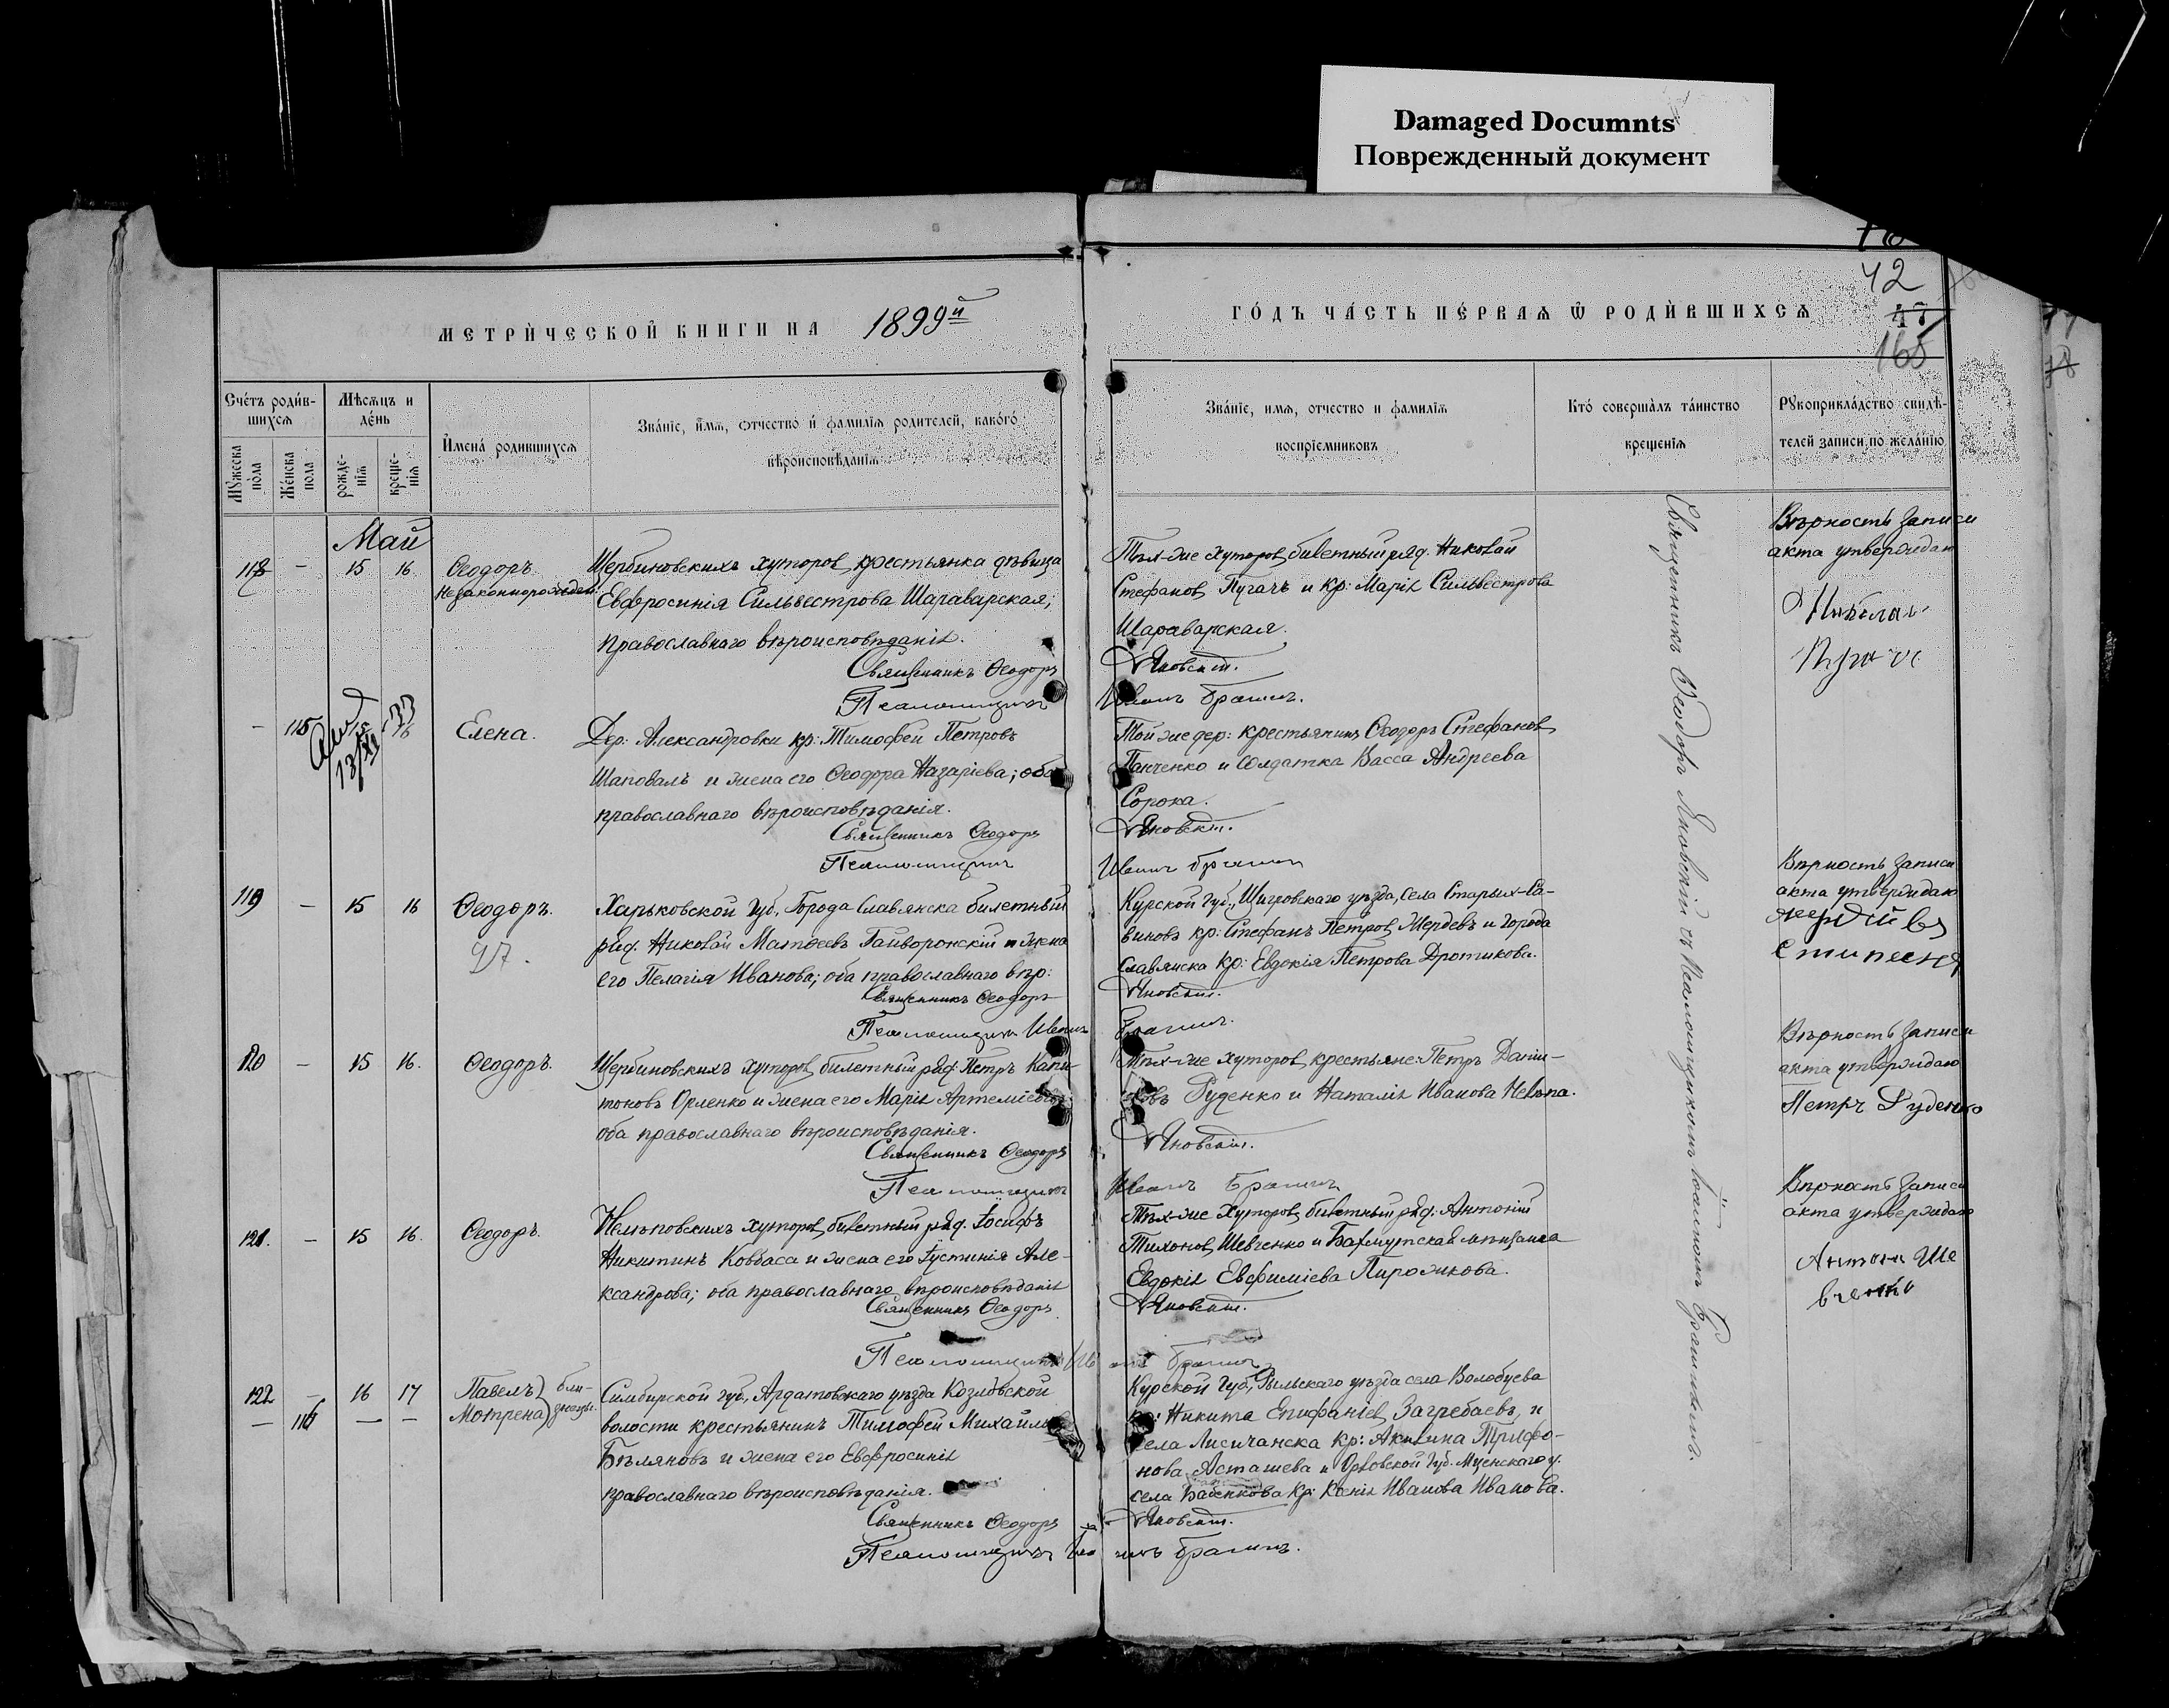 Damaged Documnts
Поврежденный документ
42
47
165
МЕТРИ́ЧЕСКОЙ КНИГИ НА 1899й
ГО́ДЪ ЧА́СТЬ ПЕ́РВАѦ Ѿ РОДИ́ВШИХСѦ
Сче́тъ роди́в-
шихсѧ
Мѣсѧцъ и
де́нь
Мꙋжеска по́ла
Же́нска пола
рожде-
нїѧ
креще-
нїѧ
И҆мена́ родившихсѧ
Зва́нїе, и҆́мѧ, ѻтчество и҆ фамилїѧ родителей, како́гѡ
вѣроисповѣданїѧ
Зва́нїе, имѧ, отчество и фамилїѧ
воспрїемниковъ
Кто́ соверша́лъ та́инство
крещенїѧ
Рꙋкоприкла́дство свидѣ-
телей записи по жела́нїю
Май
118 – 15 16 Ѳеодоръ
незаконнорожден.
Щербиновскихъ хуторовъ крестьянка дѣвица
Евфросинія Сильвестрова Шараварская;
православнаго вѣроисповѣданія.
Священникъ Ѳеодоръ
Псаломщикъ
Тѣх-же хуторовъ билетный ряд. Николай
Стефановъ Пугачъ и кр: Марія Сильвестрова
Шараварская.
Яновскій.
Иванъ Брагинъ.
Вѣрность записи
акта утверждаю
Николай
Пугачъ
– 115 15 16 Елена.
Дер: Александровки кр: Тимофей Петровъ
Шаповалъ и жена его Ѳеодора Назаріева; оба
православнаго вѣроисповѣданія.
Священникъ Ѳеодоръ
Псаломщикъ
Той же дер: крестьянинъ Ѳеодоръ Стефановъ
Панченко и солдатка Васса Андреева
Сорока.
Яновскій.
Иванъ Брагинъ
119 – 15 16 Ѳеодоръ.
Харьковской губ., Города Славянска билетный
ряд. Николай Матѳеевъ Гайворонскій и жена
его Пелагія Иванова; оба православнаго вѣр:
Священникъ Ѳеодоръ
Псаломщикъ Иванъ
Курской губ., Щигровскаго уѣзда, села Старых-Са-
виновъ кр: Стефанъ Петровъ Мердевъ и города
Славянска кр: Евдокія Петрова Дротикова.
Яновскій.
Брагинъ.
Вѣрность записи
акта утверждаю
120 – 15 16. Ѳеодоръ.
Щербиновскихъ хуторовъ билетный ряд. Петръ Капи-
тоновъ Орленко и жена его Марія Артеміева;
оба православнаго вѣроисповѣданія.
Священникъ Ѳеодоръ
Псаломщикъ
Тѣх-же хуторовъ крестьяне: Петръ Дани-
ловъ Руденко и Наталія Иванова Нелѣпа.
Яновскій.
Иванъ Брагинъ
Вѣрность записи
акта утверждаю
Петръ Руденко
121. – 15 16. Ѳеодоръ.
Нелѣповскихъ хуторовъ билетный ряд. Іосифъ
Никитинъ Ковбаса и жена его Іустинія Але-
ксандрова; оба православнаго вѣроисповѣданія
Священникъ Ѳеодоръ
Псаломщикъ
Тѣх-же хуторовъ билетный ряд. Антоній
Тихоновъ Шевченко и Бахмутская мѣщанка
Евдокія Евфиміева Пирожкова.
Яновскій.
Брагинъ
Вѣрность записи
акта утверждаю
Антонъ Ше
вченко
122 – 16 17 Павелъ } близ-
– 116 – – Мотрена } нецы.
Симбирской губ., Ардатовскаго уѣзда Козловской
волости крестьянинъ Тимофей Михайловъ
Бѣляновъ и жена его Евфросинія
православнаго вѣроисповѣданія.
Священникъ Ѳеодоръ
Псаломщикъ
Курской губ., Рыльскаго уѣзда села Волобуева
кр: Никита Епифаніевъ Загребаевъ, и
села Лисичанска кр: Акилина Трифо-
нова Асташева и Орловской губ. Мценскаго у.
села кр: Ксенія Иванова Иванова.
Яновскій.
Брагинъ.
Священникъ Ѳеодоръ Яновскій съ Псаломщикомъ Іоанномъ Брагинымъ.